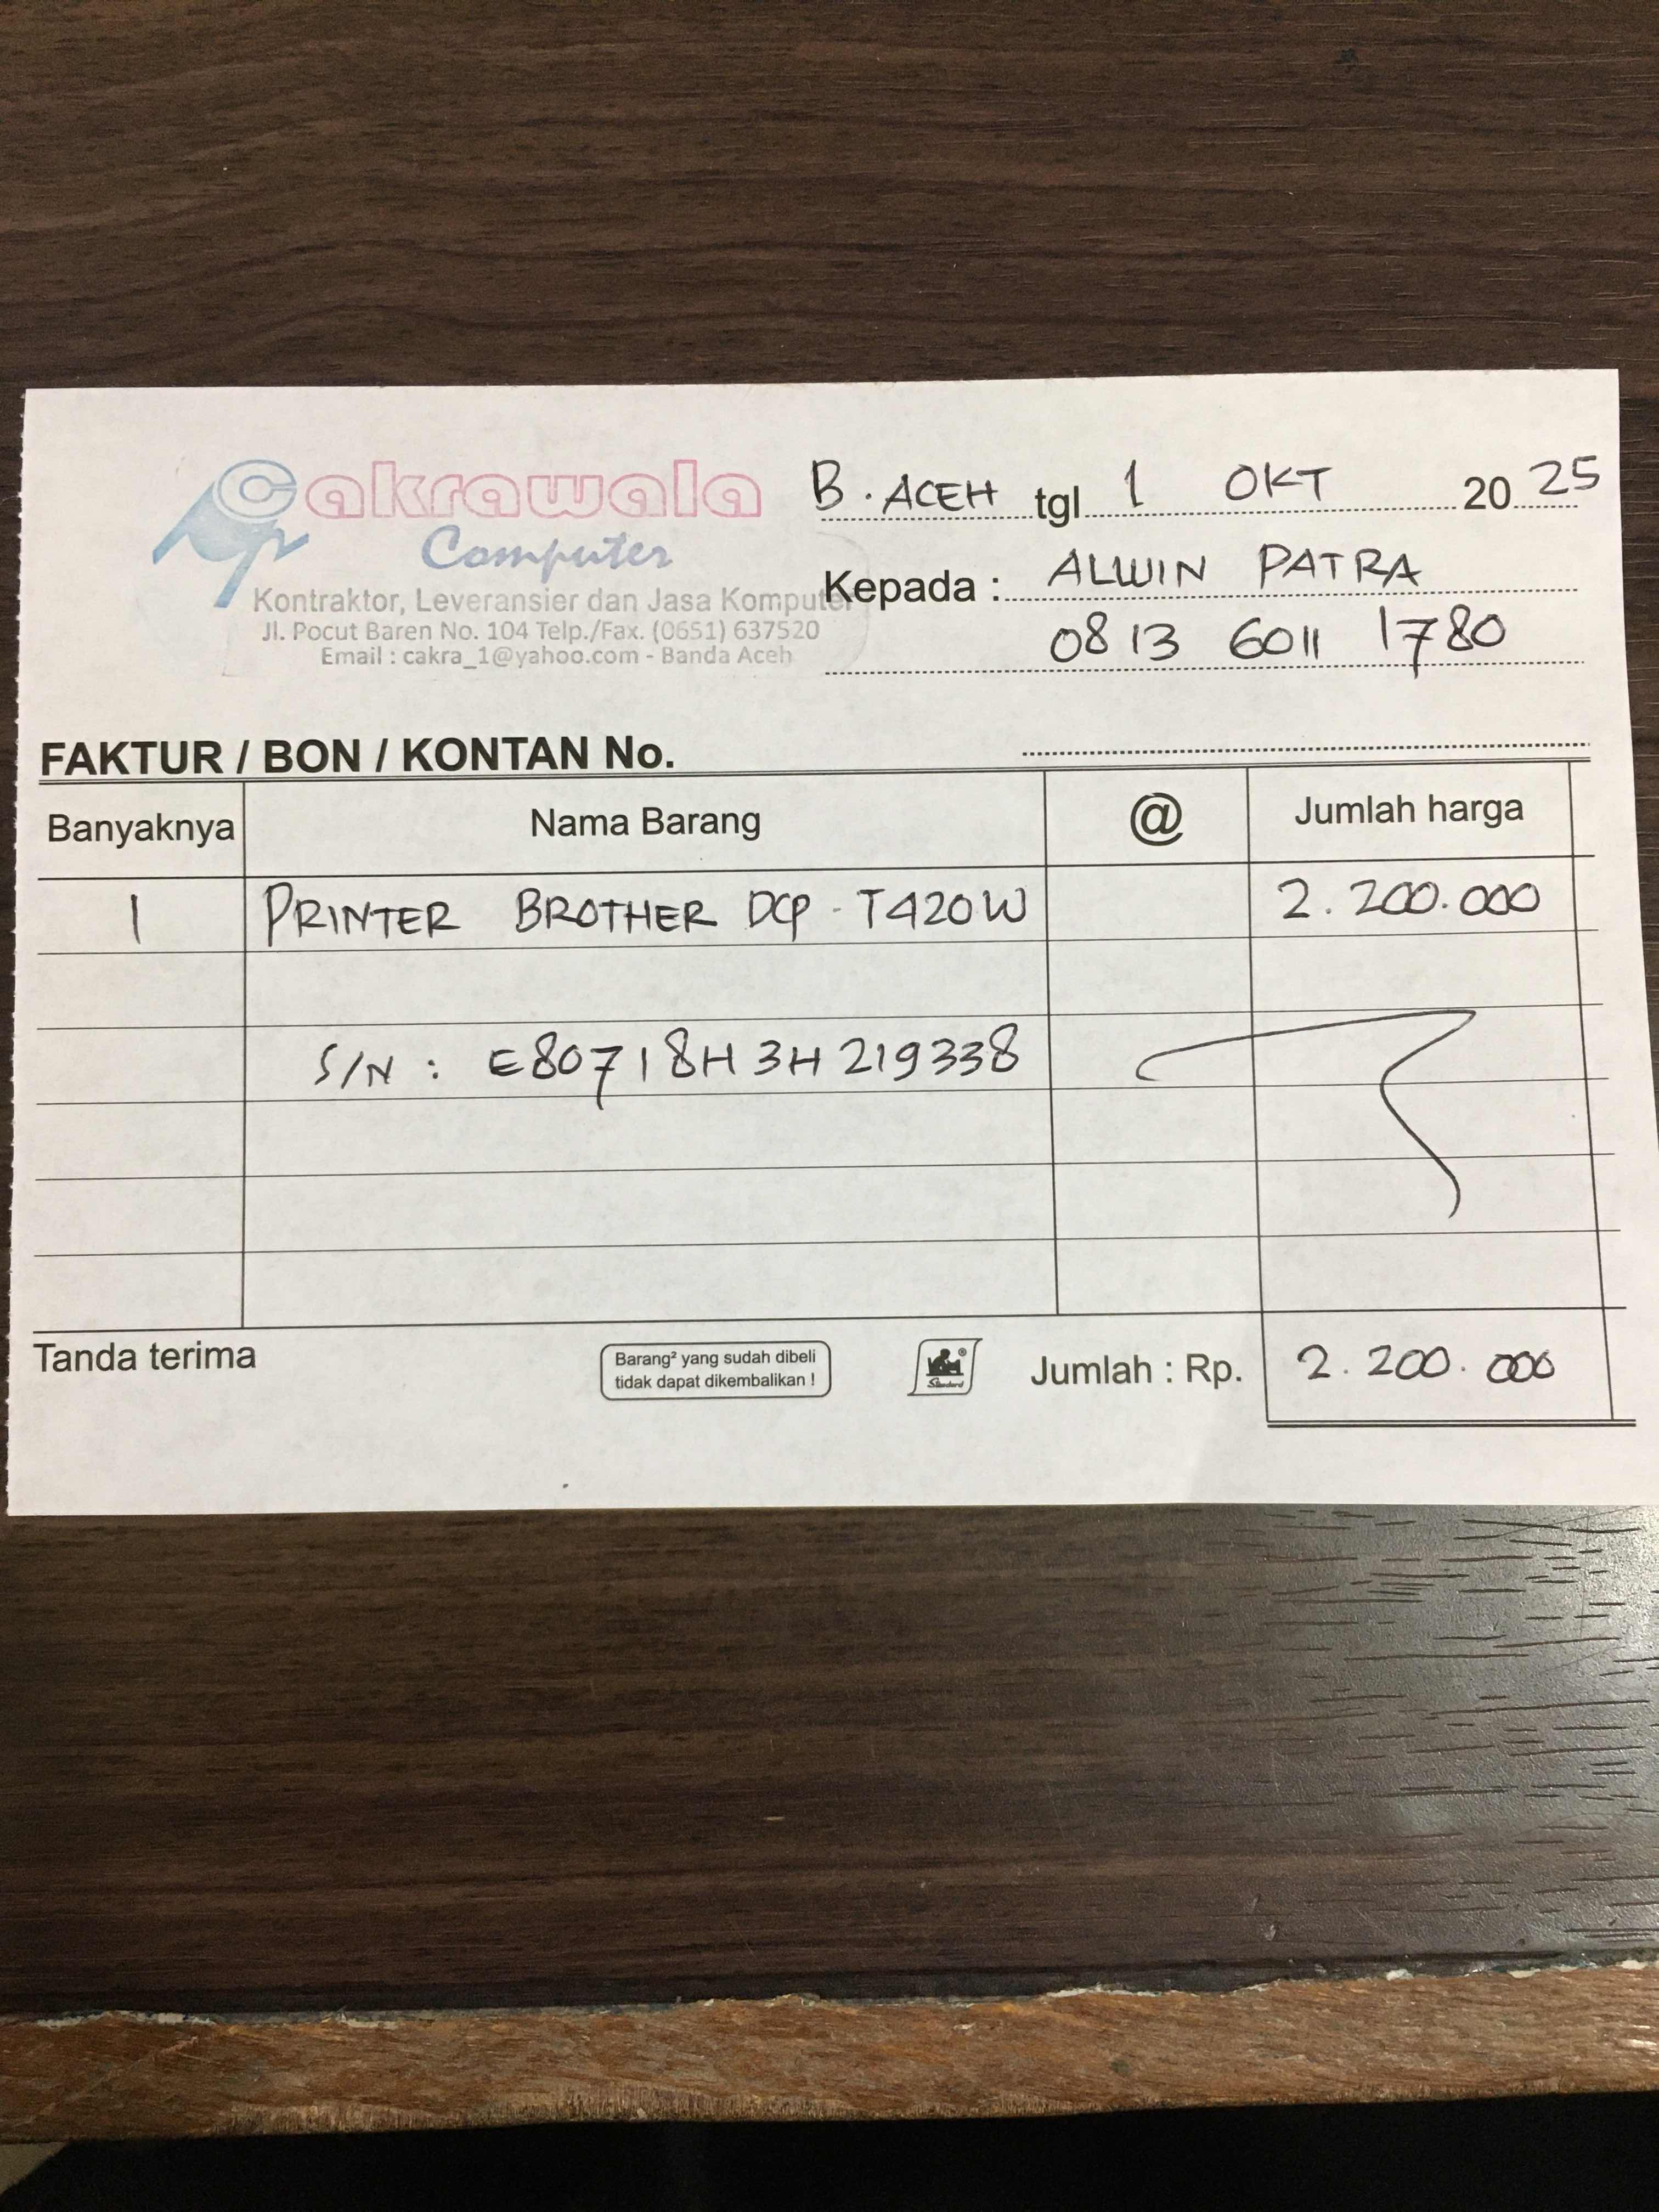 Cakrawala
Computer
Kontraktor, Leveransier dan Jasa Komputer
Jl. Pocut Baren No. 104 Telp./Fax. (0651) 637520
Email : cakra_1@yahoo.com - Banda Aceh
B. ACEH tgl 1 OKT 20 25
Kepada : ALWIN PATRA
0813 6011 1780
FAKTUR / BON / KONTAN No.
Banyaknya Nama Barang @ Jumlah harga
1 PRINTER BROTHER DCP - T420W 2.200.000
S/N : E80718H3H219338
Tanda terima
Barang² yang sudah dibeli
tidak dapat dikembalikan !
Standard
Jumlah : Rp. 2.200.000